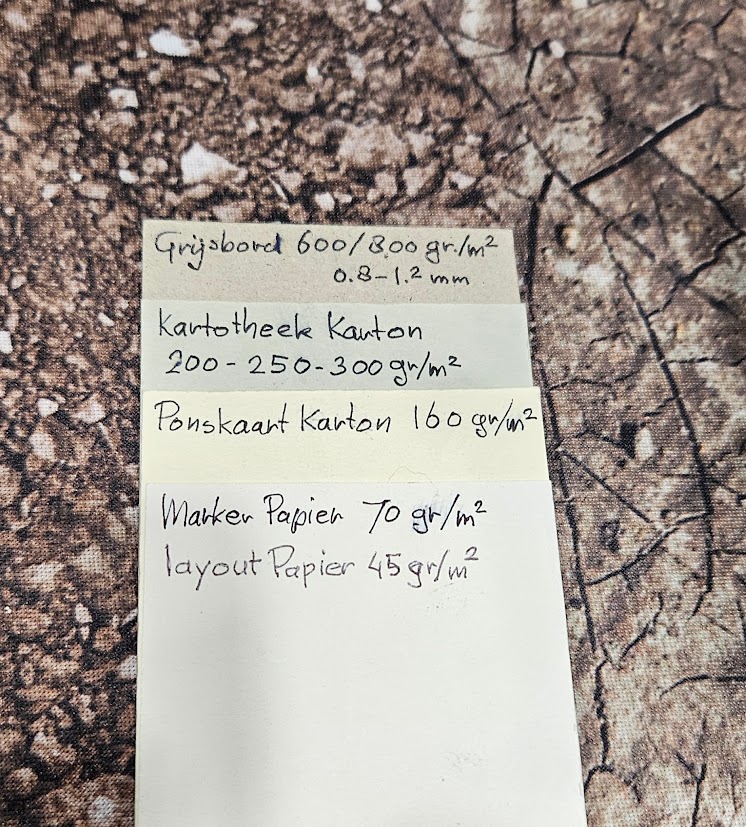 Grijsbord 600/800 gr./m²
0.8-1.2 mm
Kartotheek Karton
200-250-300 gr/m²
Ponskaart Karton 160 gr/m²
Marker Papier 70 gr/m²
layout Papier 45 gr/m²